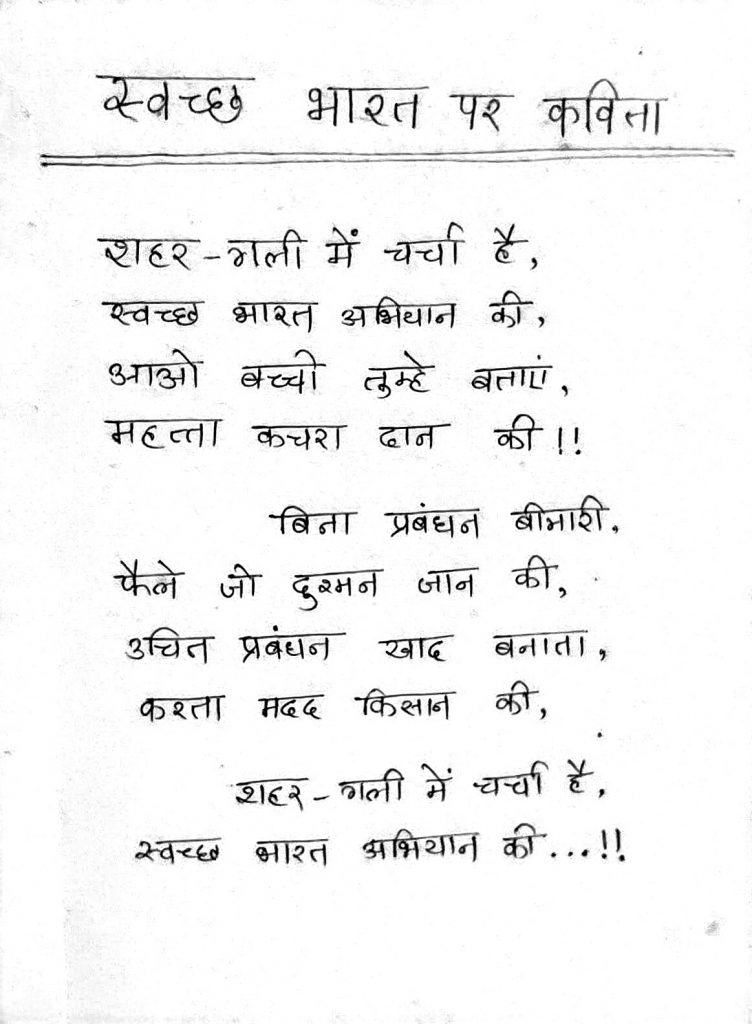 स्वच्छ भारत पर कविता
शहर-गली में चर्चा है,
स्वच्छ भारत अभियान की,
आओ बच्चो तुम्हे बताएं,
महत्ता कचरा दान की !!
बिना प्रबंधन बीमारी,
फैले जो दुश्मन जान की,
उचित प्रबंधन खाद बनाता,
करता मदद किसान की,
शहर-गली में चर्चा है,
स्वच्छ भारत अभियान की...!!